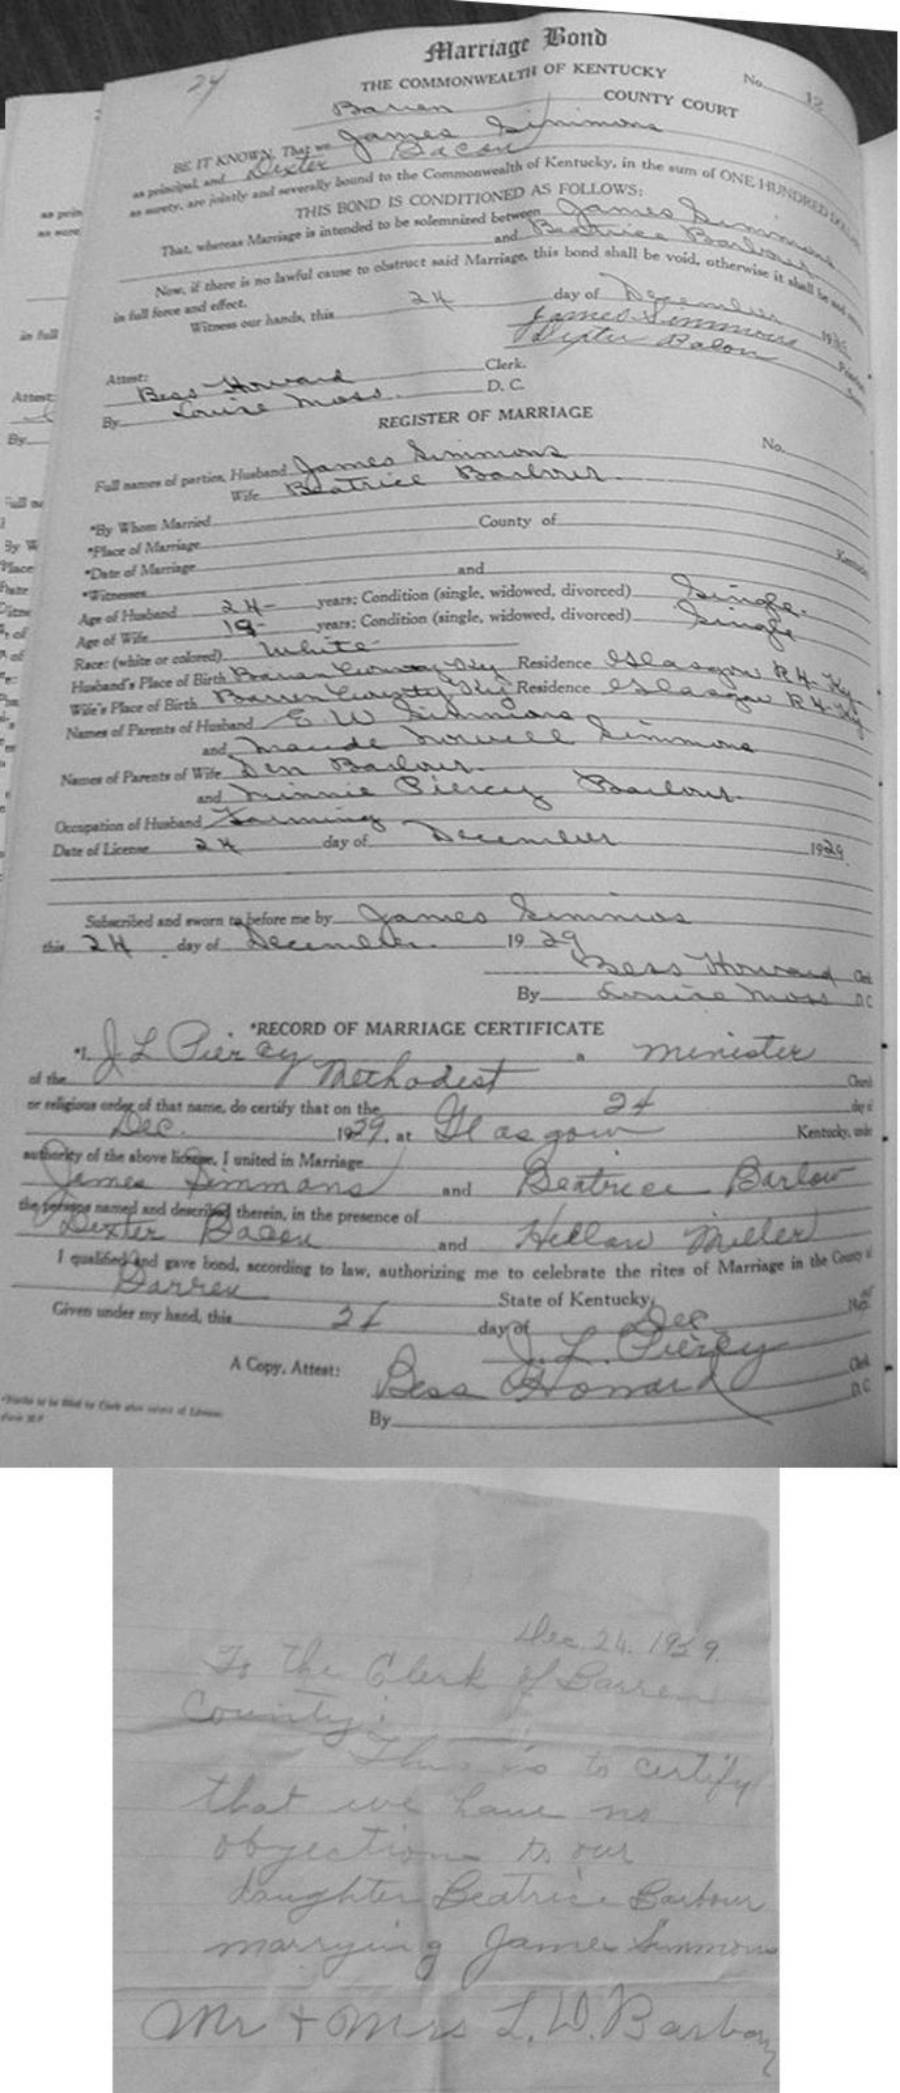 Marriage Bond
24
THE COMMONWEALTH OF KENTUCKY
No. 12
Barren COUNTY COURT
BE IT KNOWN, That we James Simmons
as principal, and Dexter Bacon
as surety, are jointly and severally bound to the Commonwealth of Kentucky, in the sum of ONE HUNDRED
THIS BOND IS CONDITIONED AS FOLLOWS:
That, whereas Marriage is intended to be solemnized between James Simmons
and Beatrice Barbour
Now, if there is no lawful cause to obstruct said Marriage, this bond shall be void, otherwise it shall be and
in full force and effect.
Witness our hands, this 24 day of December
James Simmons
Dexter Bacon
Attest:
Bess Howard Clerk.
By Louise Moss D. C.
REGISTER OF MARRIAGE
No.
Full names of parties, Husband James Simmons
Wife Beatrice Barbour
*By Whom Married
*Place of Marriage County of
*Date of Marriage
*Witnesses and
Age of Husband 24 years; Condition (single, widowed, divorced) Single
Age of Wife 19 years; Condition (single, widowed, divorced) Single
Race: (white or colored) White
Husband's Place of Birth Barren County Ky Residence Glasgow R4 Ky
Wife's Place of Birth Barren County Ky Residence Glasgow R4 Ky
Names of Parents of Husband E W Simmons
and Maude Simmons
Names of Parents of Wife Den Barbour
and Minnie Piercy Barbour
Occupation of Husband Farming
Date of License 24 day of December 1929
Subscribed and sworn to before me by James Simmons
this 24 day of December 1929
Bess Howard Clerk
By Louise Moss D C
*RECORD OF MARRIAGE CERTIFICATE
*I, J L Piercy a minister
of the Methodest Church
or religious order of that name, do certify that on the 24 day of
Dec. 1929, at Glasgow Kentucky, under
authority of the above license, I united in Marriage
James Simmons and Beatrice Barlow
the persons named and described therein, in the presence of
Dexter Bacon and Hellow Miller
I qualified and gave bond, according to law, authorizing me to celebrate the rites of Marriage in the County of
Barren State of Kentucky,
Given under my hand, this day of Dec
J. L. Piercy
A Copy, Attest: Bess Howard Clerk
By D C
Dec. 24. 1929.
To the Clerk of Barren
County:
This is to certify
that we have no
objections to our
daughter Beatrice Barbour
marrying James Simmons
Mr + Mrs L. W. Barbour